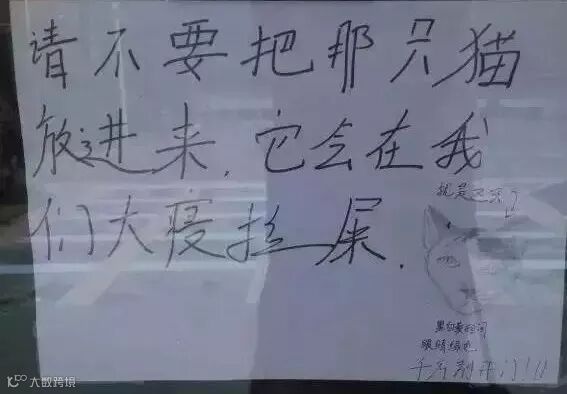 请不要把那只猫
放进来,它会在我
们大寝拉屎.
就是
黑白黄相间
眼睛绿色
千万别开门!!!
大数跨境